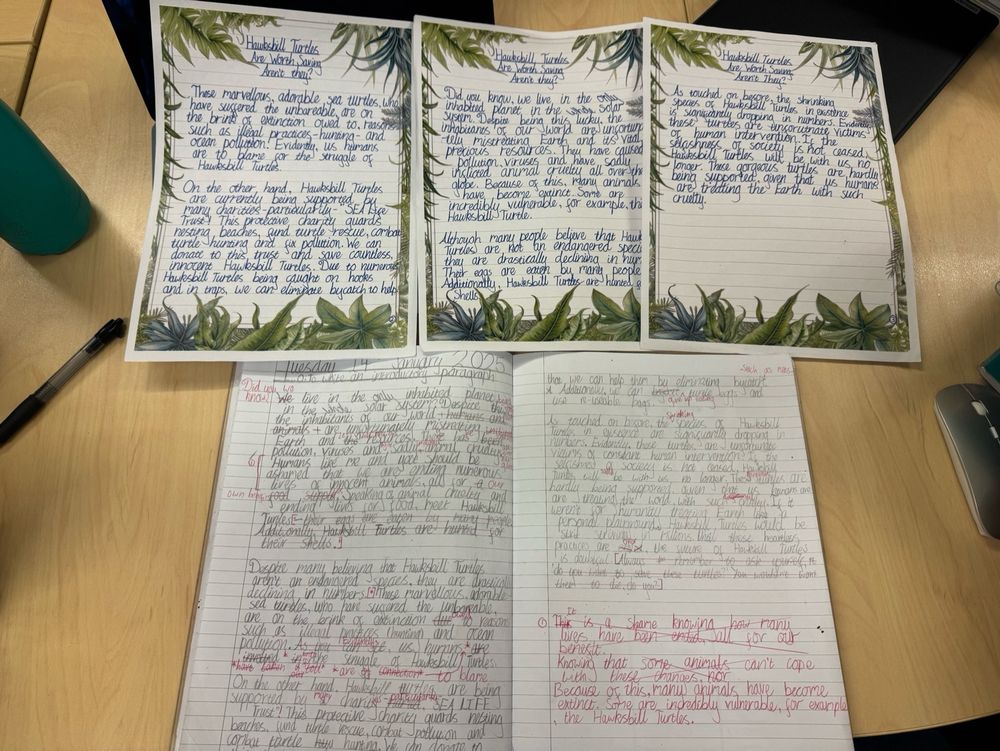 Hawksbill Turtles
Are Worth Saving
Aren't they?
These marvellous, adorable sea turtles, who
have suggered the unbareable, are on
the brink of extinction owed to, reasons
such as illegal practices-hunting- and
ocean pollution. Evidently, us humans
are to blame for the struggle of
Hawksbill Turtles.
On the other hand, Hawksbill Turtles
are currently being supported by
many charities-particularly- SEA Life
Trust! This protective, charity guards
nesting, beaches, fund turtle rescue, combat
turtle hunting and fix pollution. We can
donate to this trust and save countless,
innocent Hawksbill Turtles. Due to numerous
Hawksbill Turtles being caught on hooks
and in traps, we can eliminate bycatch to help
Hawksbill Turtles
Are Worth Saving
Aren't they?
Did you know, we live, in the only
inhabited planet, in the solar
system. Despite being this lucky, the
inhabitants of our world are unfortun
tly mistreating Earth and its vast,
precious resources. They have caused
pollution, viruses and have sadly
inclined animal cruelty all over the
globe. Because of this, many animals
have become extinct. Some are
incredibly vulnerable, for example, the
Hawksbill Turtle.
Although many people believe that Hawk
Turtles are not an endangered speci
they are drastically declining in num
Their eggs are eaten by many people
Additionally, Hawksbill Turtles are hunted
Shells.
Hawksbill Turtles
Are Worth Saving
Aren't They?
As touched on besore, the shrinking
species of Hawksbill Turtles in existence
is significantly dropping in numbers. Evidently
these turtles are unfortunate victims
of human intervention. If the
selfishness of society is not ceased,
Hawksbill Turtles will be with us no
longer. These gorgeous turtles are hardly
being supported, given that us humans
are treating the Earth with such
cruelty.
Tuesday 14 January 2025
LO: To write an introductory paragraph
Did you
know, We live in the only inhabited planet
in the solar system? Despite this
the inhabitants of our world humans
animals are unfortunately mistreating
Earth and resources.
pollution, viruses and sadly animal
Humans like me and you should be
ashamed that we are ending numerous
lives of innocent animals, all for our
own speaking of animal cruelty and
ending lives for food, meet Hawksbill
Turtles- their eggs are eaten by many people
Additionally, Hawksbill Turtles are hunted for
their shells.
Despite many believing that Hawksbill Turtles
aren't an endangered species, they are drastically
declining in numbers. These marvellous, adorable
sea turtles, who have suggered the unbareable,
are on the brink of extinction to reasons
such as illegal practices (hunting) and ocean
pollution. us, humans are
the struggle of Hawksbill Turtles.
to blame
On the other hand, Hawksbill turtles are being
supported by many SEA LIFE
Trust! This protective charity guards nesting
beaches, fund turtle rescue, combat pollution and
combat turtle hunting. We can donate to
such as
that we can help them by eliminating bycatch.
Additionally, we can
re-usable bags.
shrinking
As touched on besore, the species of Hawksbill
Turtles in existence are significantly dropping in
numbers. Evidently, these turtles are unfortunate
victims of constant human intervention. If the
selfishness of society is not ceased, Hawksbill
Turtles will be with us no longer. These turtles are
hardly being supported, given that us humans are
are treating the world with such cruelty. If it
weren't for humanity treating Earth like a
personal playground, Hawksbill Turtles would be
still thriving in millions. Until these heartless
practices are the future of Hawksbill Turtles
is doubtful. [Always remember to ask yourself,
'do you want to save these turtles?' You wouldn't want
them to die, do you?]
It
This is a shame knowing how many
lives have been ended, all for our
benefit.
Knowing that some animals can't cope
with these changes, nor
Because of this, many animals have become
extinct. Some are incredibly vulnerable, for example
, the Hawksbill Turtles.